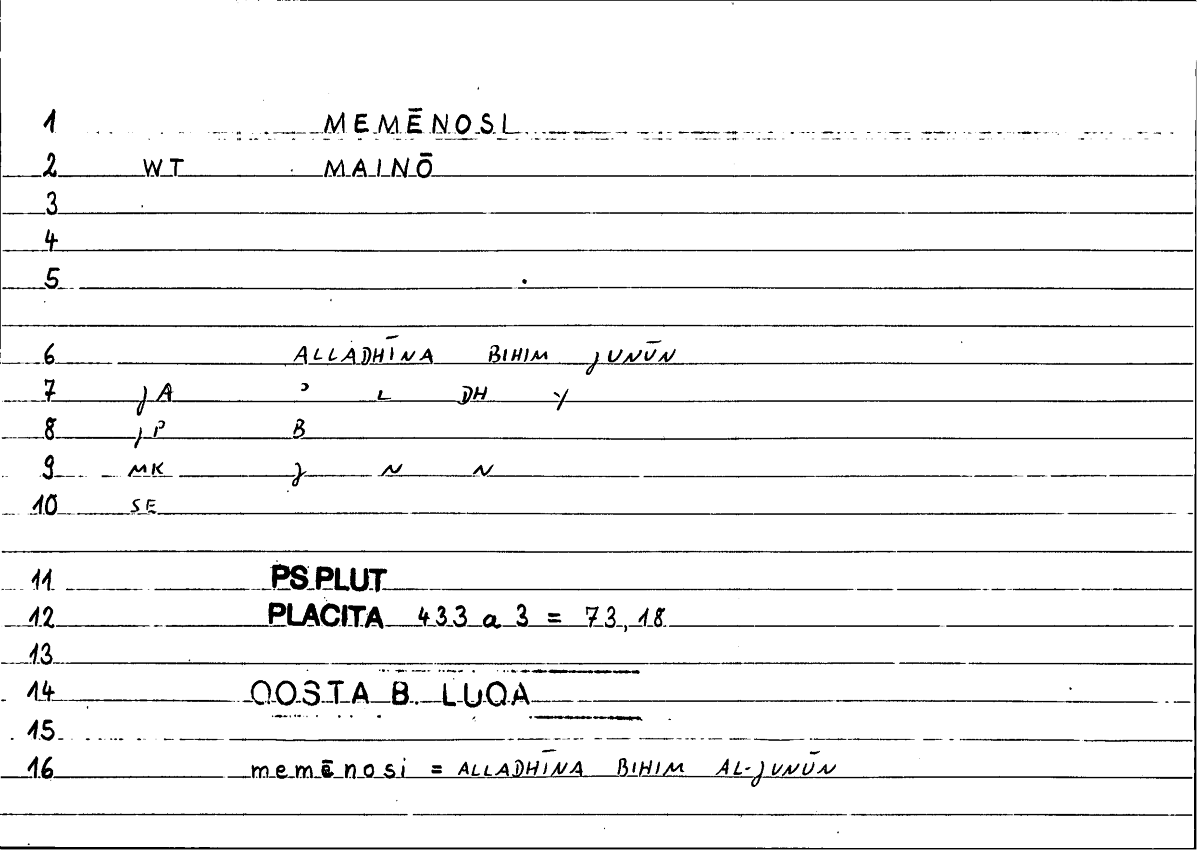 1 MEMĒNOSI
2 WT MAINŌ
3
4
5
6 ALLADHĪNA BIHIM JUNŪN
7 JA ʾ L DH Y
8 JP B
9 MK J N N
10 SE
11 PS.PLUT
12 PLACITA 433 a 3 = 73,18
13
14 QOSTA B. LUQA
15
16 memēnosi = ALLADHĪNA BIHIM AL-JUNŪN